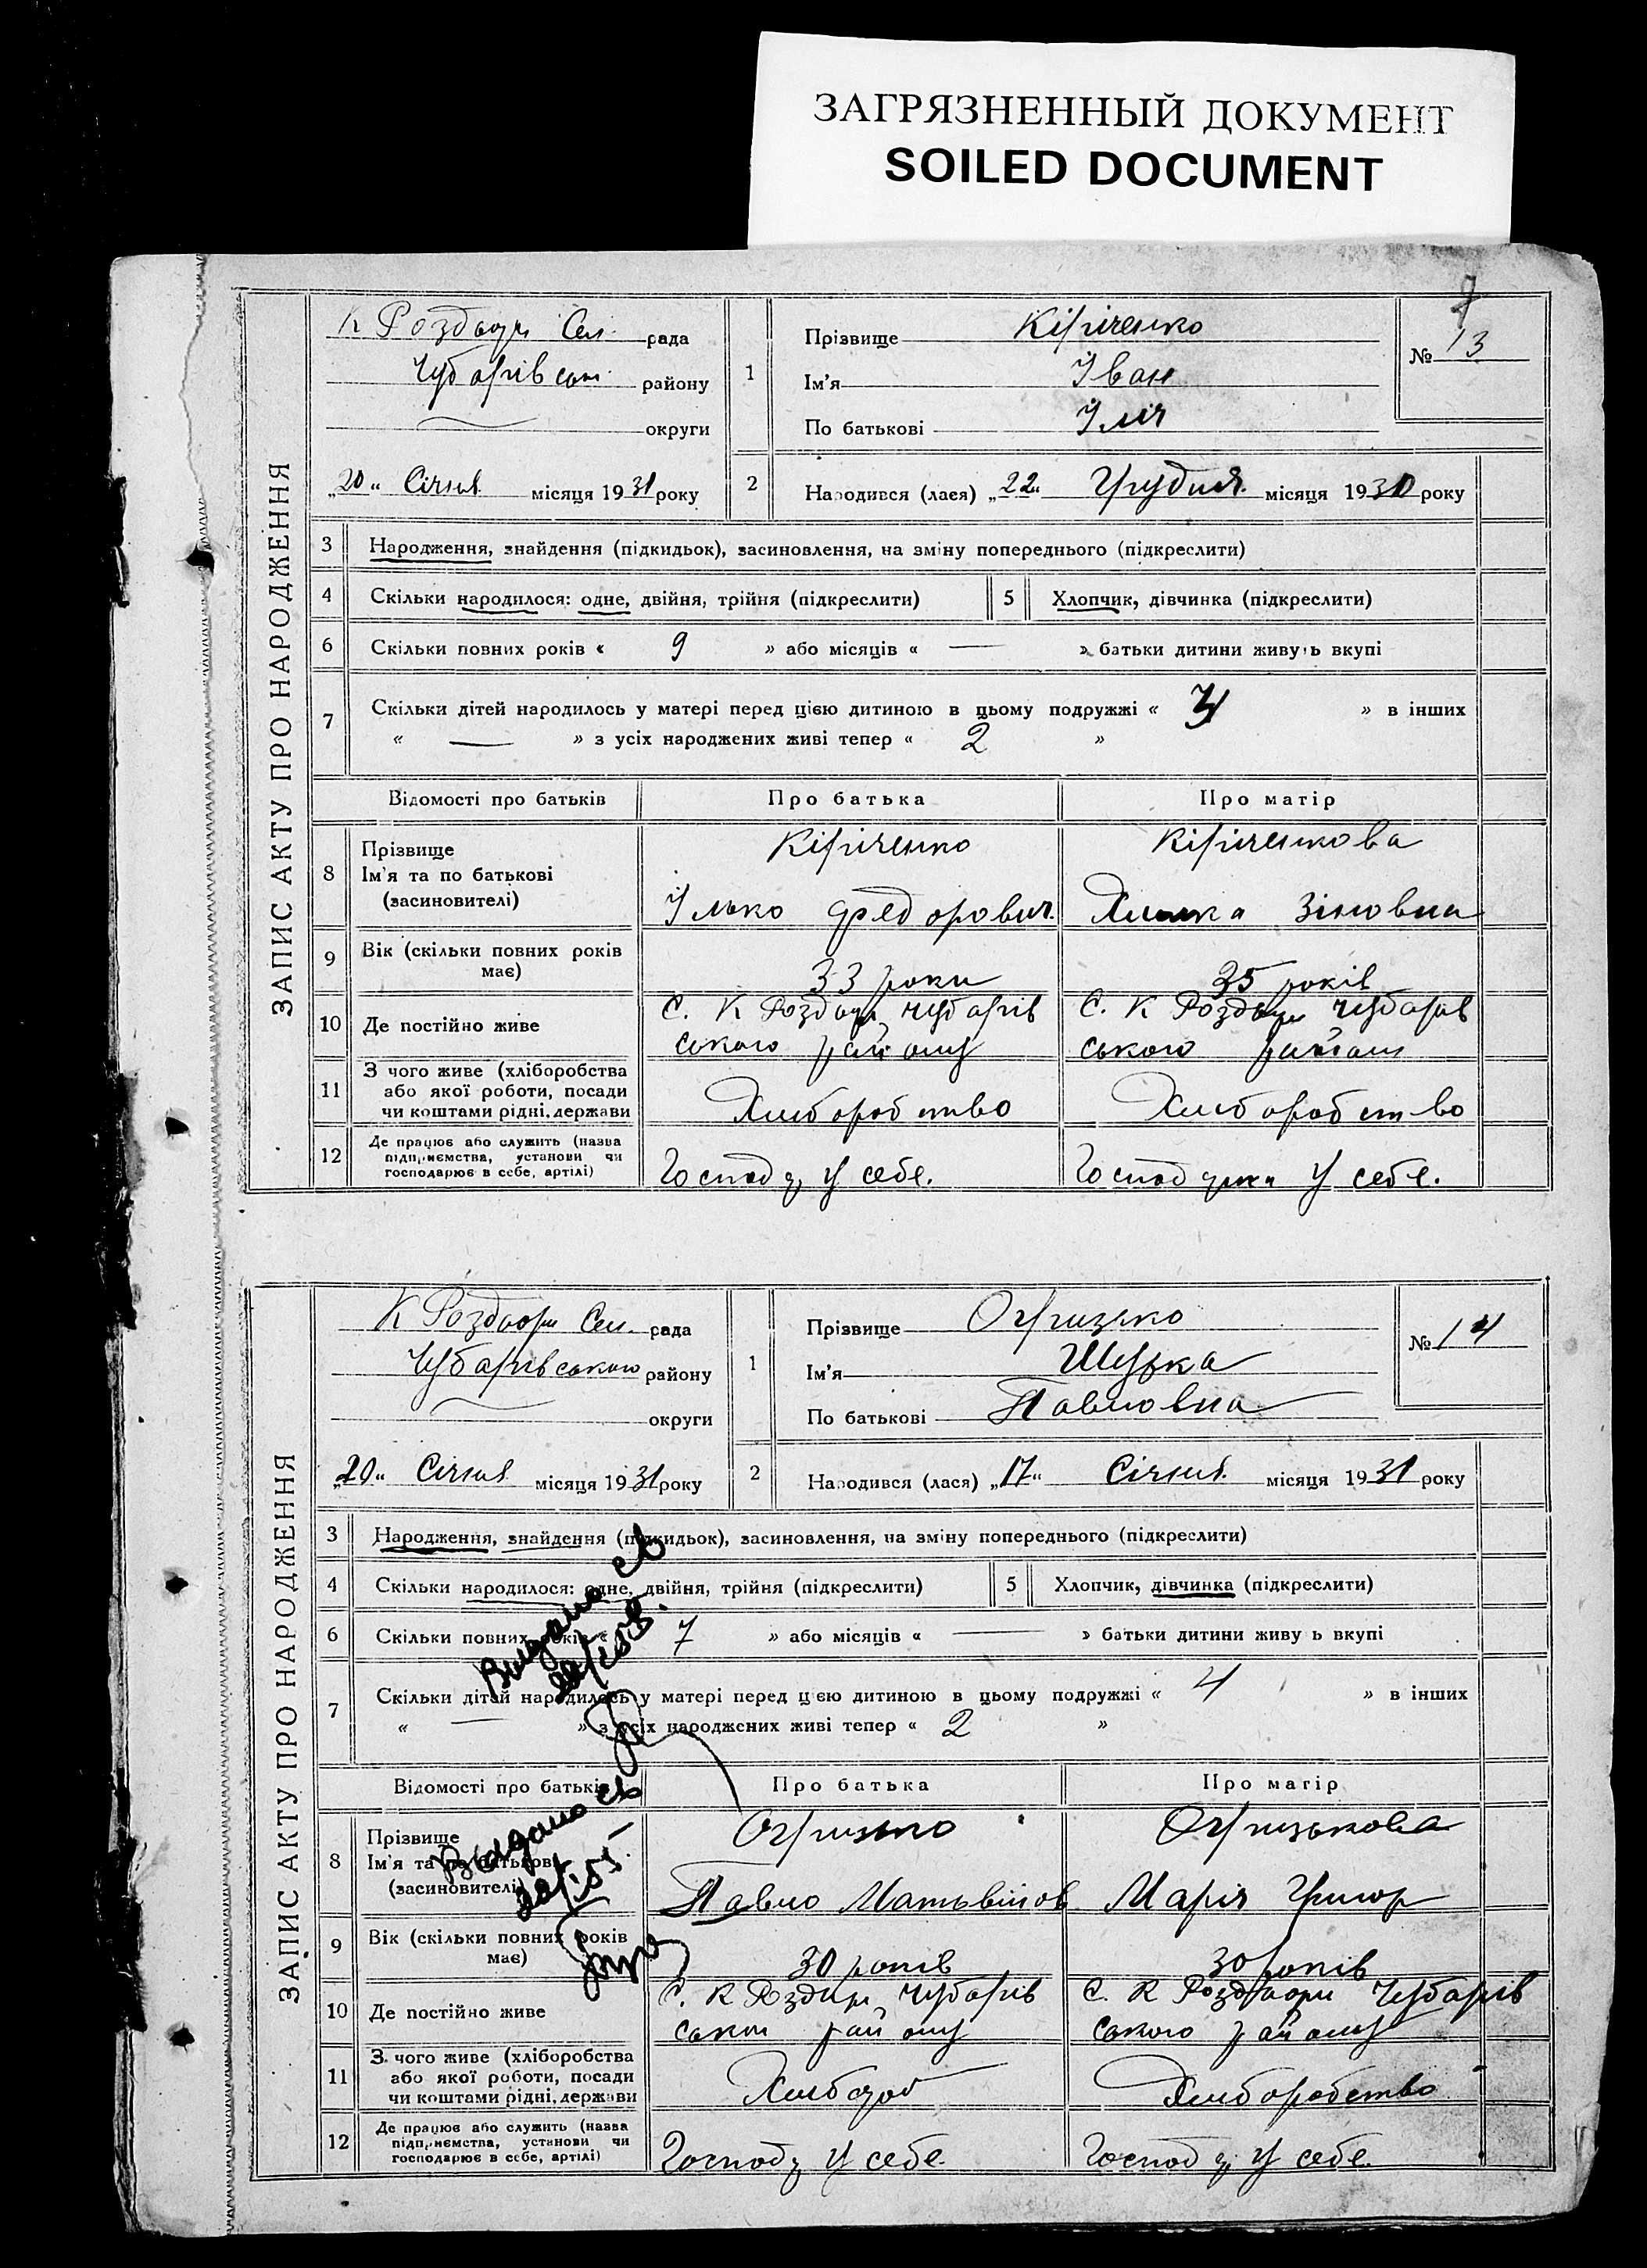 ЗАГРЯЗНЕННЫЙ ДОКУМЕНТ
SOILED DOCUMENT
7
ЗАПИС АКТУ ПРО НАРОДЖЕННЯ
К Роздори Сел. рада
Чубарівськ. району
округи
„20“ Січня місяця 1931 року
1
Прізвище Кіріченко
Ім'я Іван
По батькові Іліч
№ 13
2
Народився (лася) „22“ Грудня місяця 1930 року
3 Народження, знайдення (підкидьок), засиновлення, на зміну попереднього (підкреслити)
4 Скільки народилося: одне, двійня, трійня (підкреслити) 5 Хлопчик, дівчинка (підкреслити)
6 Скільки повних років « 9 » або місяців « — » батьки дитини живуть вкупі
7 Скільки дітей народилось у матері перед цією дитиною в цьому подружжі « » в інших
« — » з усіх народжених живі тепер « 2 »
Відомості про батьків Про батька Про матір
8 Прізвище
Ім'я та по батькові
(засиновителі)
Кіріченко Кіріченкова
Ілько Федорович Зіновна
9 Вік (скільки повних років
має)
33 роки 35 років
10 Де постійно живе
С. К Роздори Чубарів С. К Роздори Чубарів
ського району ського району
11 З чого живе (хліборобства
або якої роботи, посади
чи коштами рідні, держави
Хліборобство Хліборобство
12 Де працює або служить (назва
підприємства, установи чи
господарює в себе, артілі)
Господ у себе. у себе.
ЗАПИС АКТУ ПРО НАРОДЖЕННЯ
К Роздори Сел. рада
Чубарівського району
округи
„20“ Січня місяця 1931 року
1
Прізвище Огризько
Ім'я Шурка
По батькові Павловна
№ 14
2
Народився (лася) „17“ Січня місяця 1931 року
3 Народження, знайдення (підкидьок), засиновлення, на зміну попереднього (підкреслити)
4 Скільки народилося: одне, двійня, трійня (підкреслити) 5 Хлопчик, дівчинка (підкреслити)
6 Скільки повних років « 7 » або місяців « — » батьки дитини живу ь вкупі
7 Скільки дітей народилось у матері перед цією дитиною в цьому подружжі « 4 » в інших
« — » з усіх народжених живі тепер « 2 »
Відомості про батьків Про батька Про матір
8 Прізвище
Ім'я та по батькові
(засиновителі)
Огризько Огризькова
Павло Матьвійов Марія Григор
9 Вік (скільки повних років
має)
30 років 30 років
10 Де постійно живе
С. К Роздори Чубарів С. К Роздори Чубарів
ськог району ського району
11 З чого живе (хліборобства
або якої роботи, посади
чи коштами рідні, держави
Хлібороб Хліборобство
12 Де працює або служить (назва
підприємства, установи чи
господарює в себе, артілі)
Господ у себе. Господ у себе.
Выдано св
Выдано св